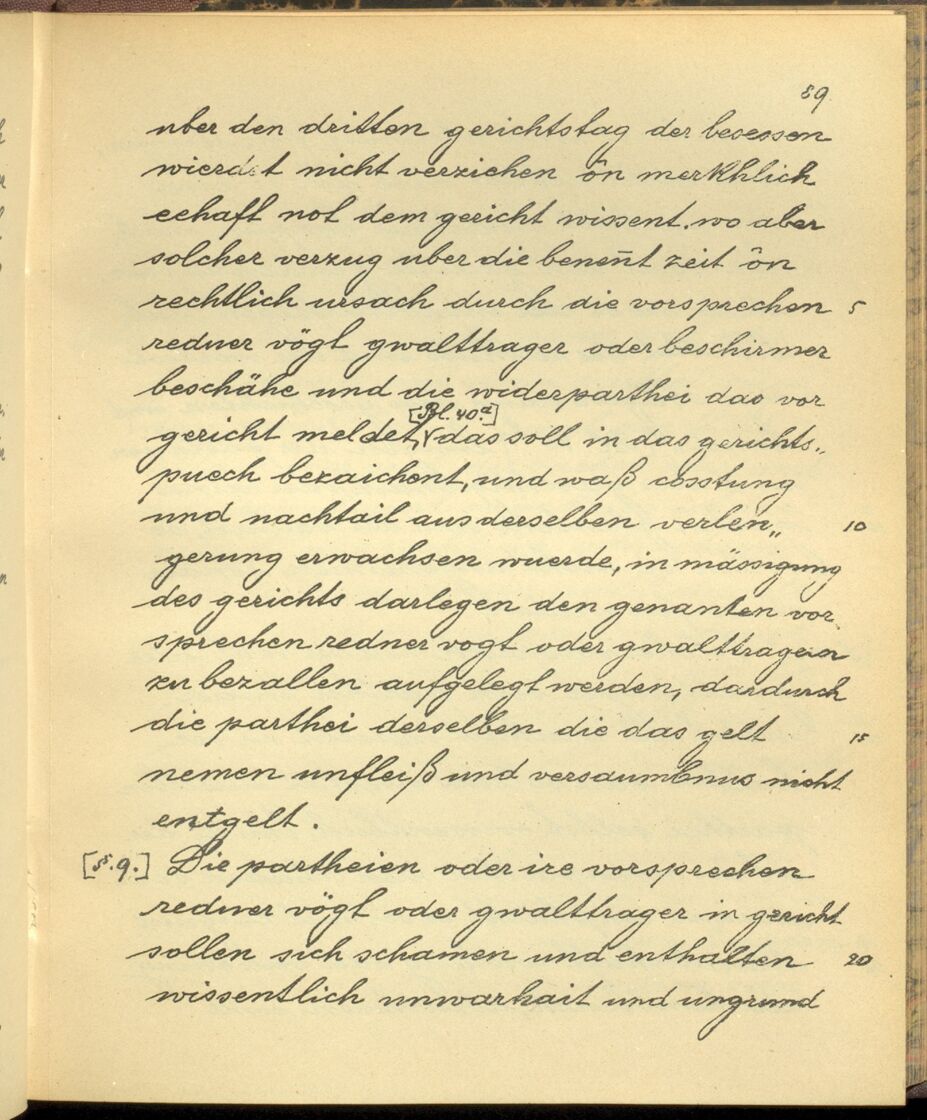 89
uber den dritten gerichtstag der besessen
wierdet nicht verziehen ôn merkhlich
eehaft not dem gericht wissent. wo aber
solcher verzug uber die beneñt zeit ôn
rechtlich ursach durch die vorsprechen 5
redner vögt gwalttrager oder beschirmer
beschähe und die widerparthei das vor
[Bl. 40.a]
gericht meldet, das soll in das gerichts„
puech bezaichent, und waß cosstung
und nachtail aus derselben verlen„ 10
gerung erwachsen wuerde, in mässigung
des gerichts darlegen den genanten vor
sprechen redner vogt oder gwalttragern
zu bezallen aufgelegt werden, dardurch
die parthei derselben die das gelt 15
nemen unfleiß und versaumbnus nicht
entgelt.
[§.9.] Die partheien oder ire vorsprechen
redner vögt oder gwalttrager in gericht
sollen sich schamen und enthalten 20
wissentlich unwarhait und ungrund